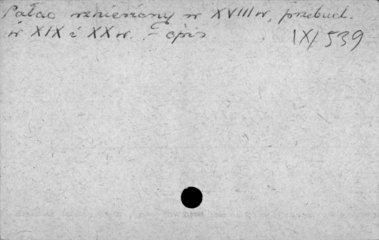 Pałac wzniesiony w XVIII w, przebud.
w XIX i XX w. – opis
IX/539